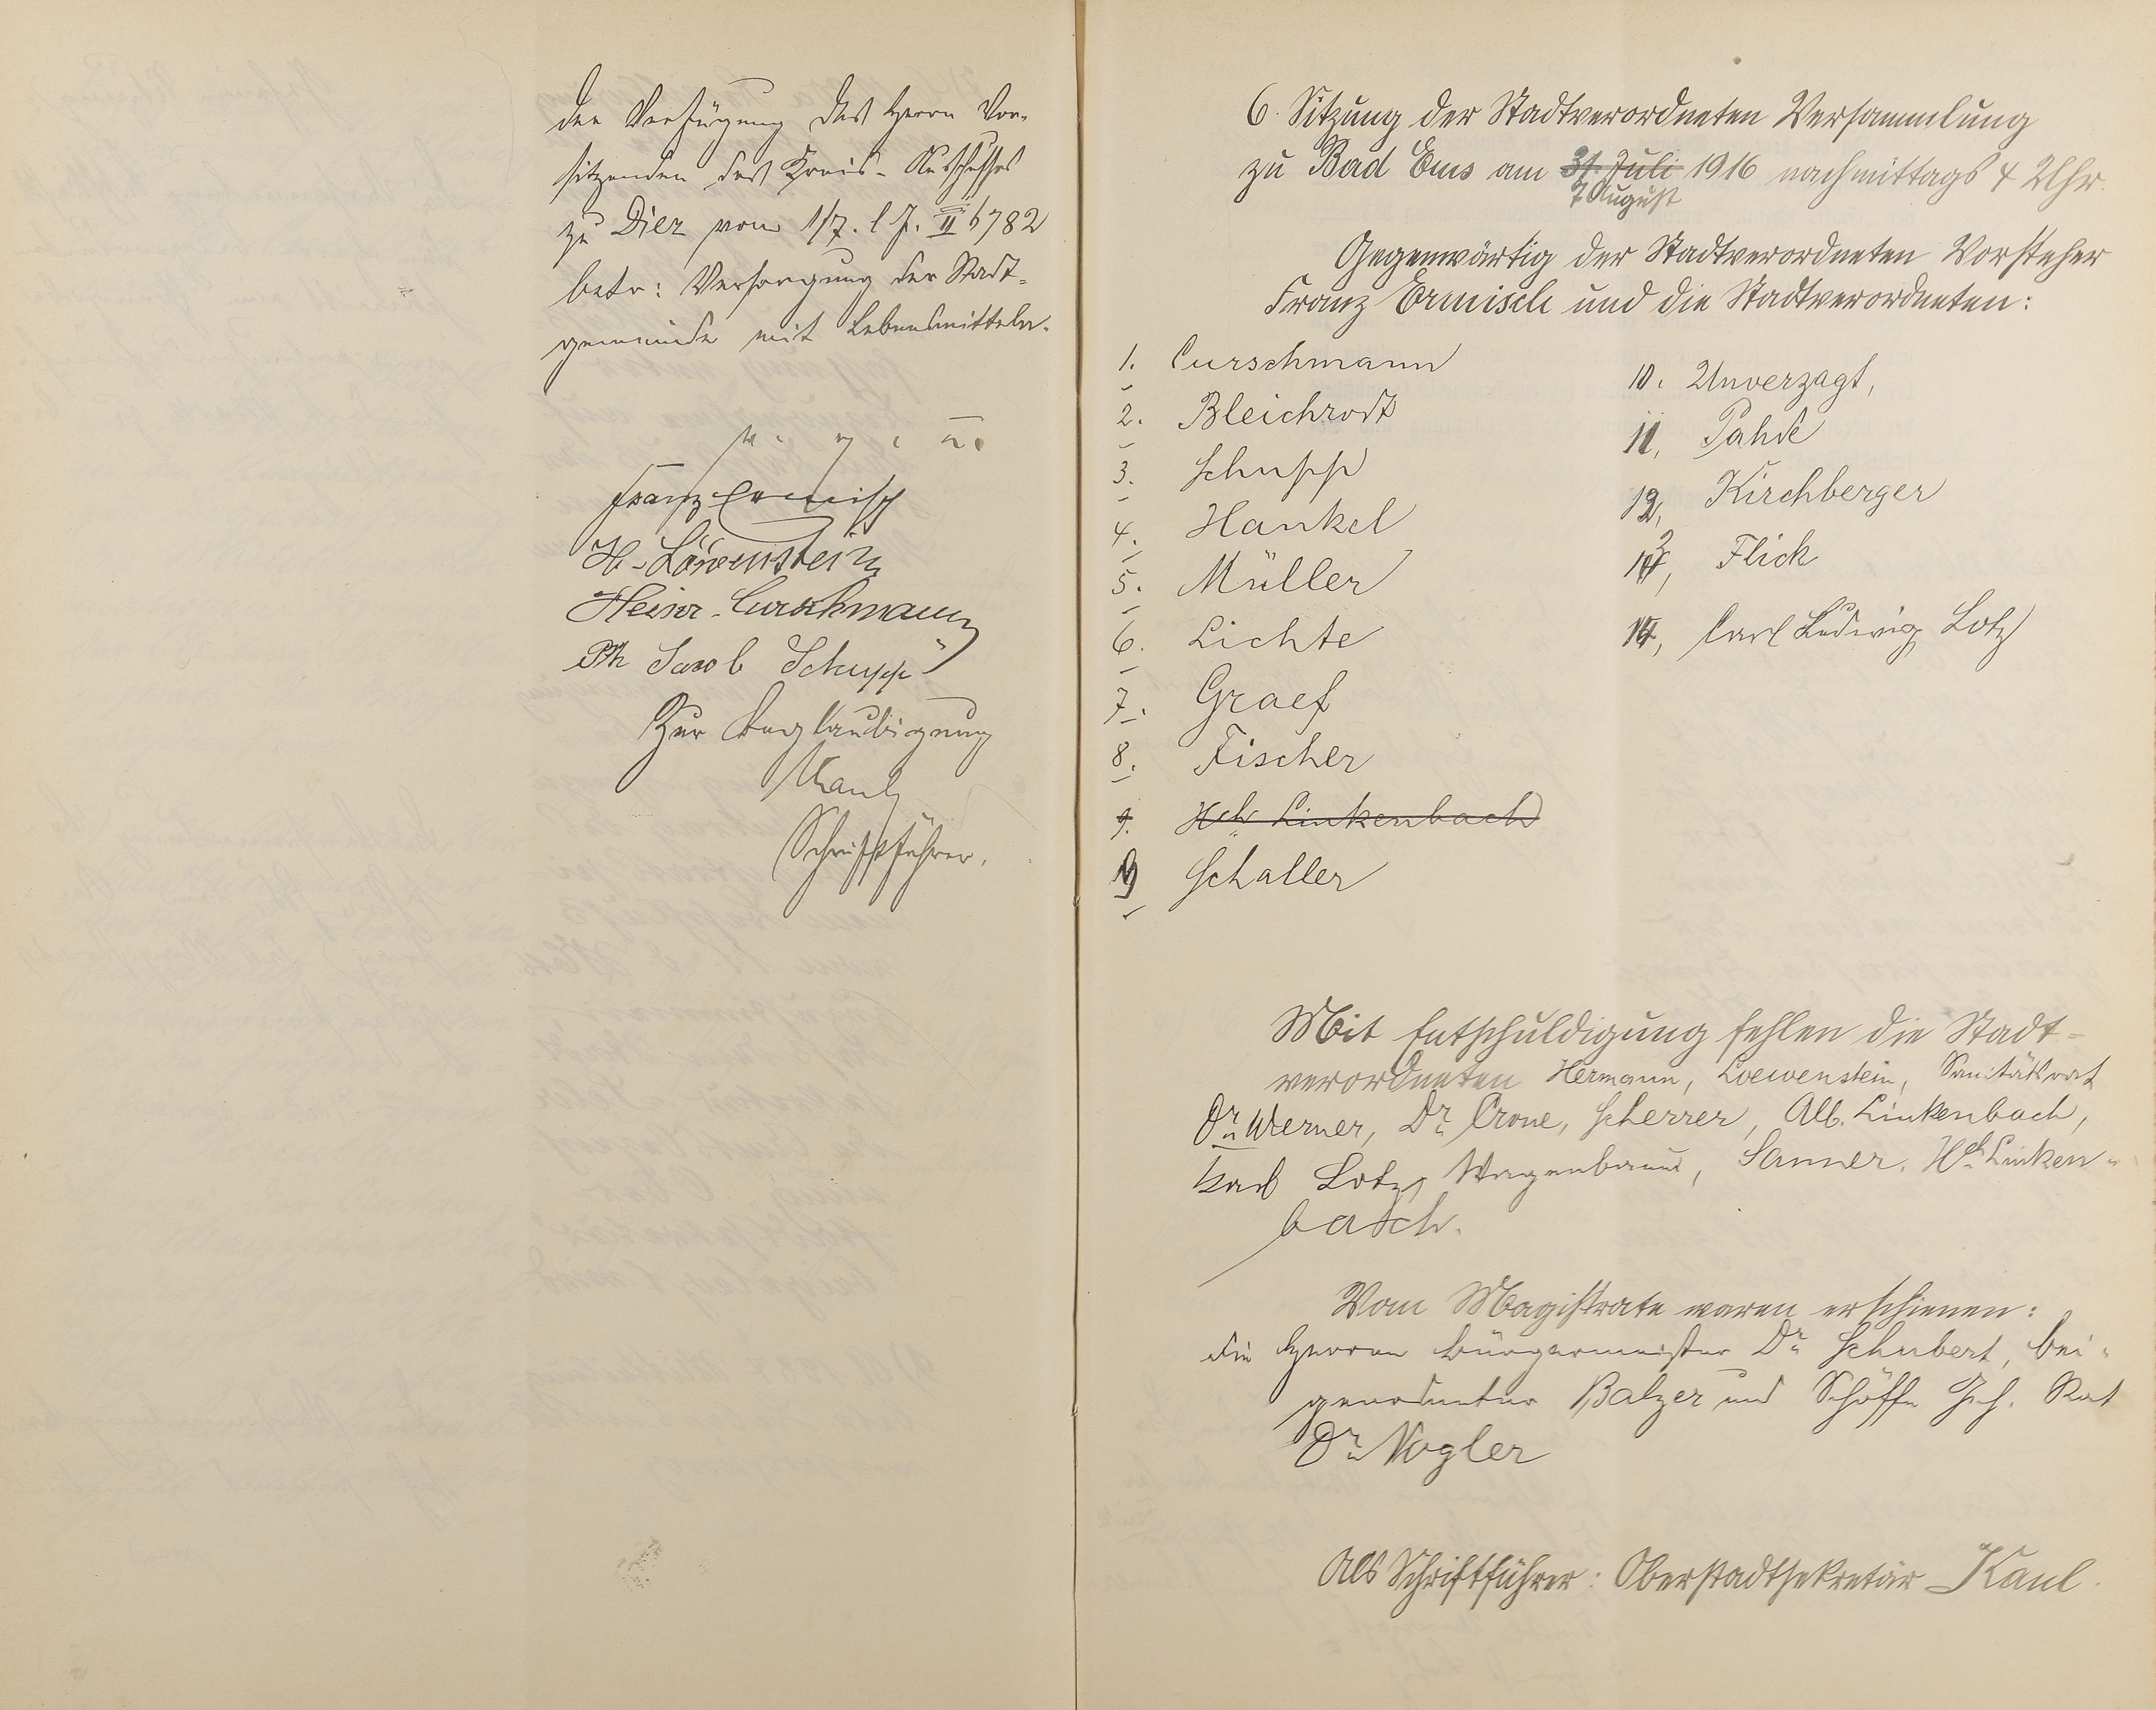 der Verfügung des Herrn Vor-
sitzenden des Kreis-Ausschusses
zu Diez vom 1/7. l J. II 6782
betr: Versorgung der Stadt-
gemeinde mit Lebensmitteln.
v. g. u.
Franz Ermisch
H. Löwenstein
Heinr. Curschmann
Ph Jacob Schupp
Zur Beglaubigung
Kaul
Schriftführer.
6. Sitzung der Stadtverordneten Versammlung
zu Bad Ems am 31 Juli 1916 nachmittags 4 Uhr.
7 August
Gegenwärtig der Stadtverordneten Vorsteher
Franz Ermisch und die Stadtverordneten:
1. Curschmann
2. Bleichrodt
3. Schupp
4. Hankel
5. Müller
6. Lichte
7. Graef
8. Fischer
9. Hch Linkenbach
9 Schaller
10. Unverzagt,
11, Pahde
12, Kirchberger
13, Flick
14, Carl Ludwig Lotz
Mit Entschuldigung fehlen die Stadt-
verordneten Hermann, Loewenstein, Sanitätsrat
Dr. Werner, Dr. Crone, Scherrer, Alb. Linkenbach,
Karl Lotz, Wagenbaur, Sanner, Hch Linken-
bach.
Vom Magistrate waren erschienen:
die Herren Bürgermeister Dr. Schubert, Bei-
geordneter Balzer und Schöffe Geh. Rat
Dr. Vogler
Als Schriftführer: Oberstadtsekretär Kaul.